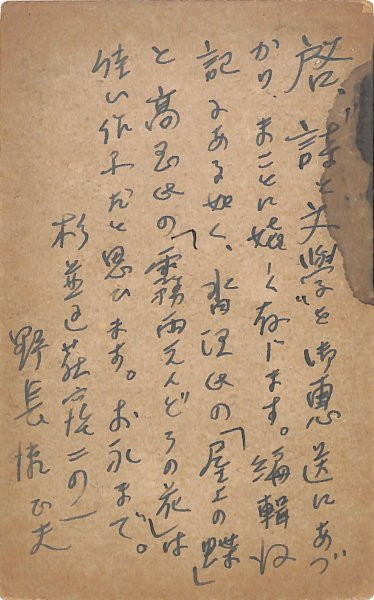 啓、"詩と文學"を御恵送にあづ
かり、まことに嬉しく存じます。編輯後
記にある如く、森江氏の「屋上の蝶」
と高玉氏の「霧雨えんどうの花」は
佳い作品だと思ひます。お礼まで。
杉並区荻窪二の一
野長瀬正夫